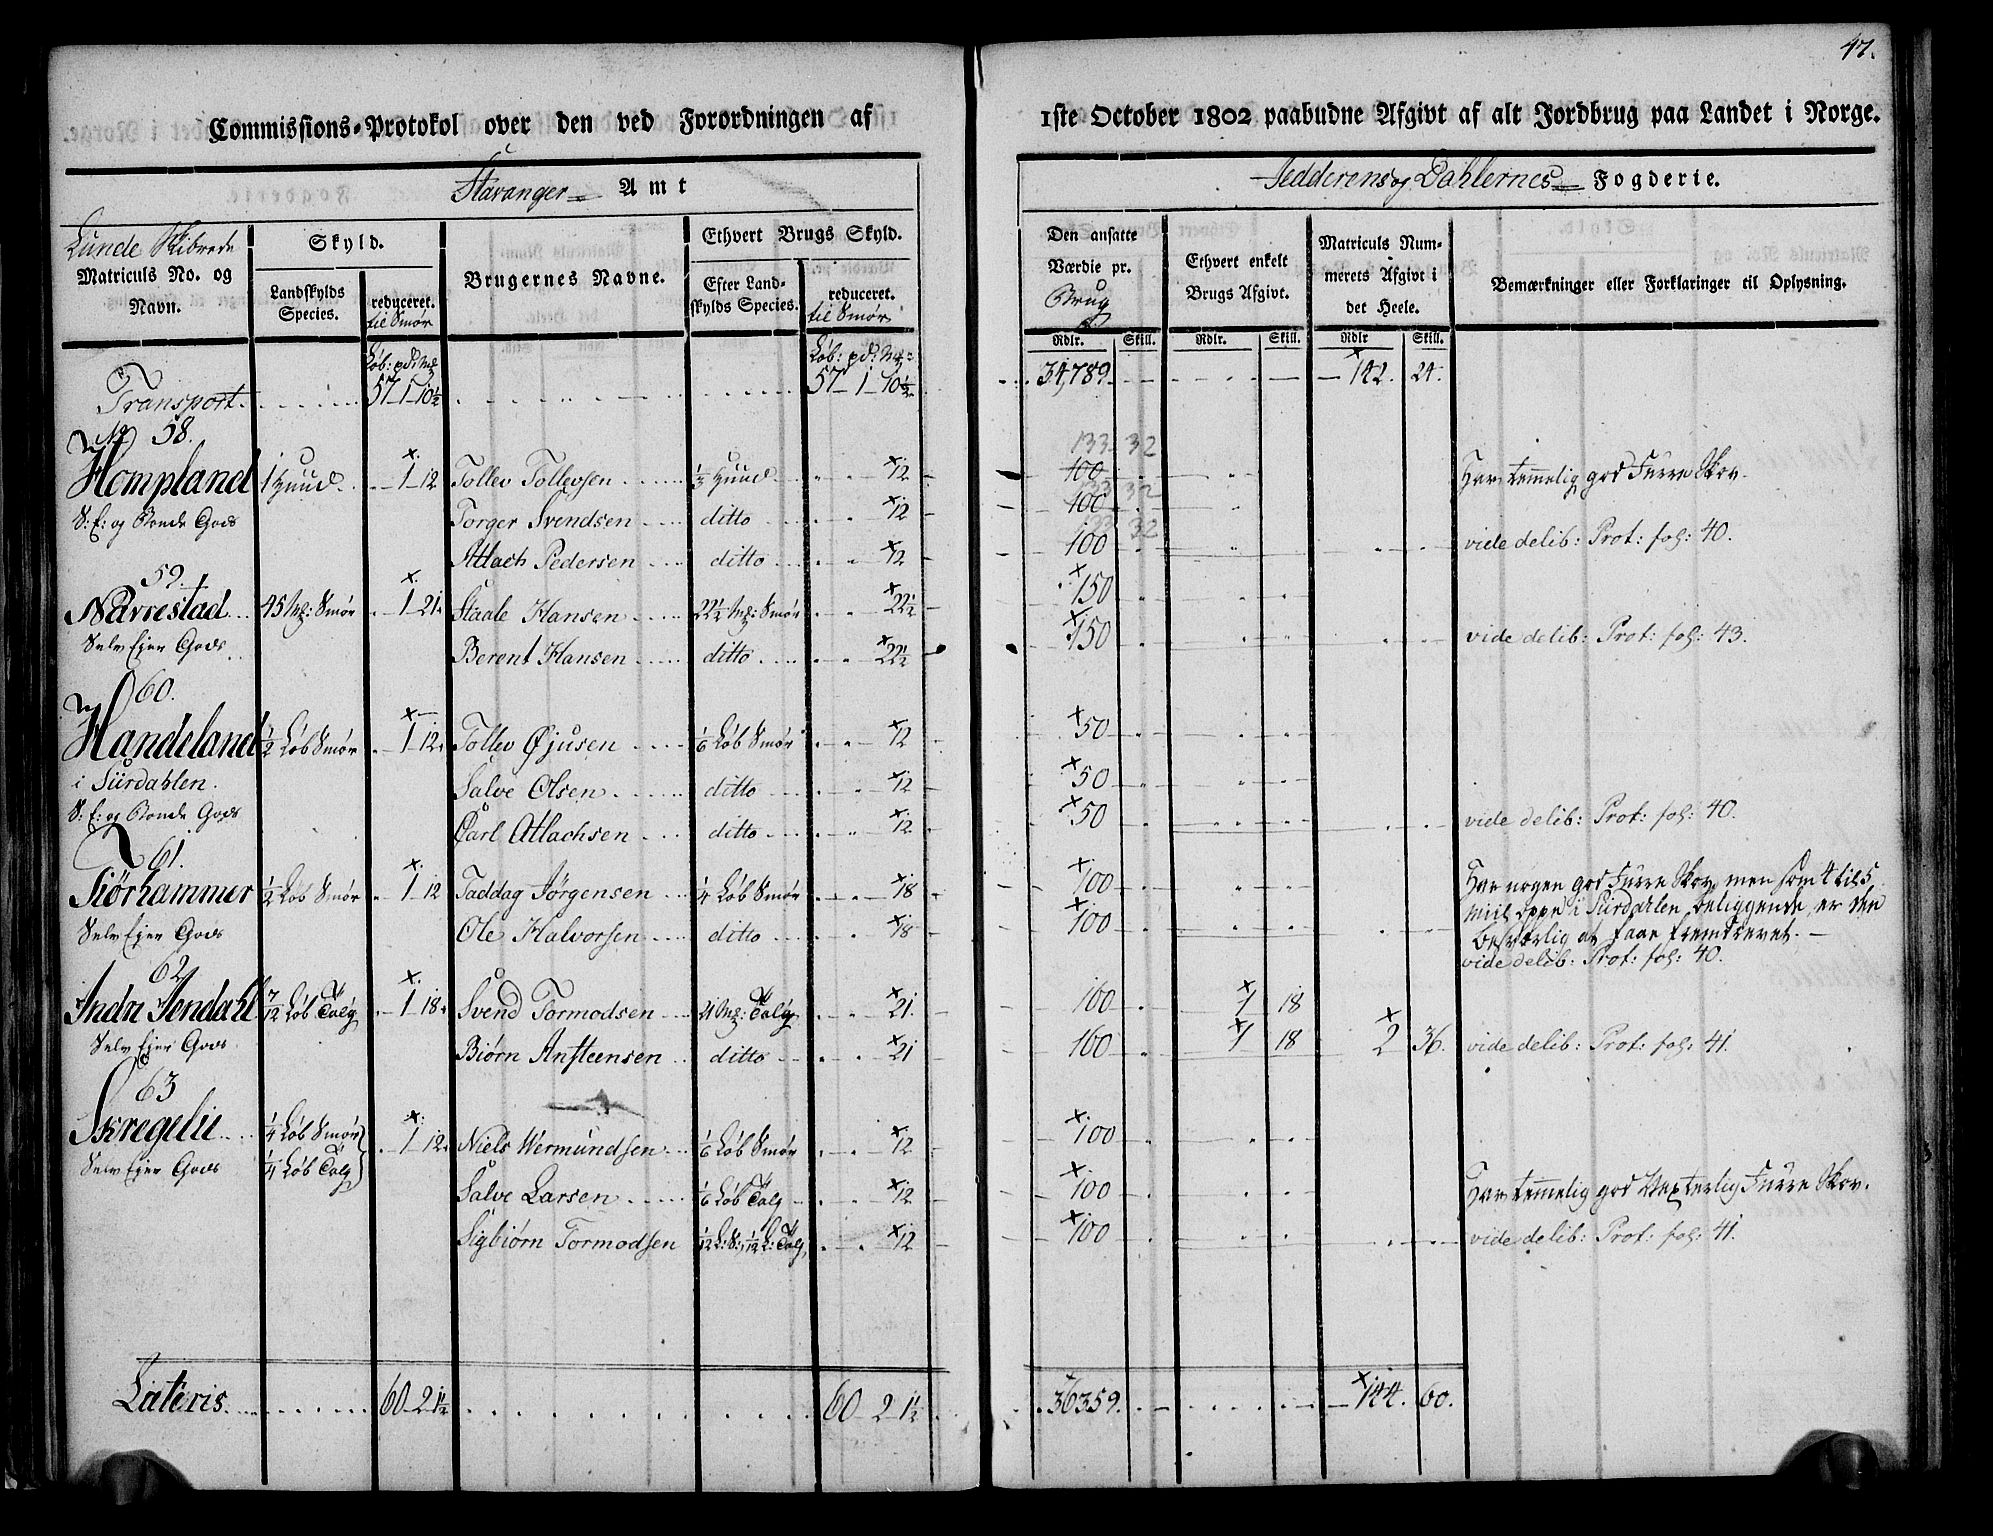 47.
Commissions-Protokol over den ved Forordningen af 1ste October 1802 paabudne Afgivt af alt Jordbrug paa Landet i Norge.
Stavanger Amt
Jedderens og Dahlernes Fogderie.
Lunde Skibrede
Matriculs No. og Navn.
Skyld.
Landskylds Species.
reduceret. til Smør
Brugernes Navne.
Ethvert Brugs Skyld.
Efter Landskylds Species.
reduceret. til Smør
Den ansatte Værdie pr. Brug
Ethvert enkelt Brugs Afgivt.
Matriculs Nummerets Afgivt i det Heele.
Bemærkninger eller Forklaringer til Oplysning.
Løb: pd: Mk Løb: pd: Mk: Rdlr. Skill. Rdlr. Skill. Rdlr Skill.
Transport 57-1-10½ 57-1-10½ 34,789 142. 24.
No 58.
133 32
Hompland 1 Huud 1-12 Tollev Tollevsen ⅓ Huud 12 100 Har temmelig god Furre Skov.
133 32
S: E: og Bonde Gods Torger Svendsen ditto 12 100
133 32
Atlach Pedersen ditto 12 100 vide delib: Prot: fol: 40.
59.
Nårrestad 45 Mk: Smør 1-21 Staale Hansen 22½ Mk: Smør 22½ 150
Selv Ejer Gods Berent Hansen ditto 22½ 150 vide delib: Prot: fol: 43.
60.
Handeland ½ Løb Smør 1-12 Tollev Øjusen 1/6 Løb Smør 12 50
i Siirdahlen. Salve Olsen ditto 12 50
S: E: og Bonde Gods Carl Atlachsen ditto 12 50 vide delib: Prot: fol: 40.
61.
Tiørhammer ½ Løb Smør 1-12 Taddag Jørgensen ¼ Løb Smør 18 100 Har nogen god Furre Skov, men som 4 til 5
Selv Ejer Gods Ole Halvorsen ditto 18 100 Miil oppe i Siirdahlen beliggende, er den
besværlig at faae fremdrevet.
vide delib: Prot: fol: 40.
62
Indre Jendahl 7/12 Løb Talg 1-18 Svend Tormodsen 21 Mk: Talg 21. 160 1 18
Selv Ejer Gods Biørn Ansteensen ditto 21 160 1 18 2 36. vide delib: Prot: fol: 41.
63
Skregelie ¼ Løb Smør 1-12 Niels Wermundsen 1/6 Løb Smør 12 100
Selv Ejer Gods ¼ Løb Talg Salve Larsen 1/6 Løb Talg 12 100 Har temmelig god Vexterlig Furre Skov.
Sigbiørn Tormodsen 1/12 L: S:, 1/12 L: Talg, 12 100 vide delib: Prot: fol: 41.
Lateris 60-2-1½ 60-2-1½ 36359. 144. 60.